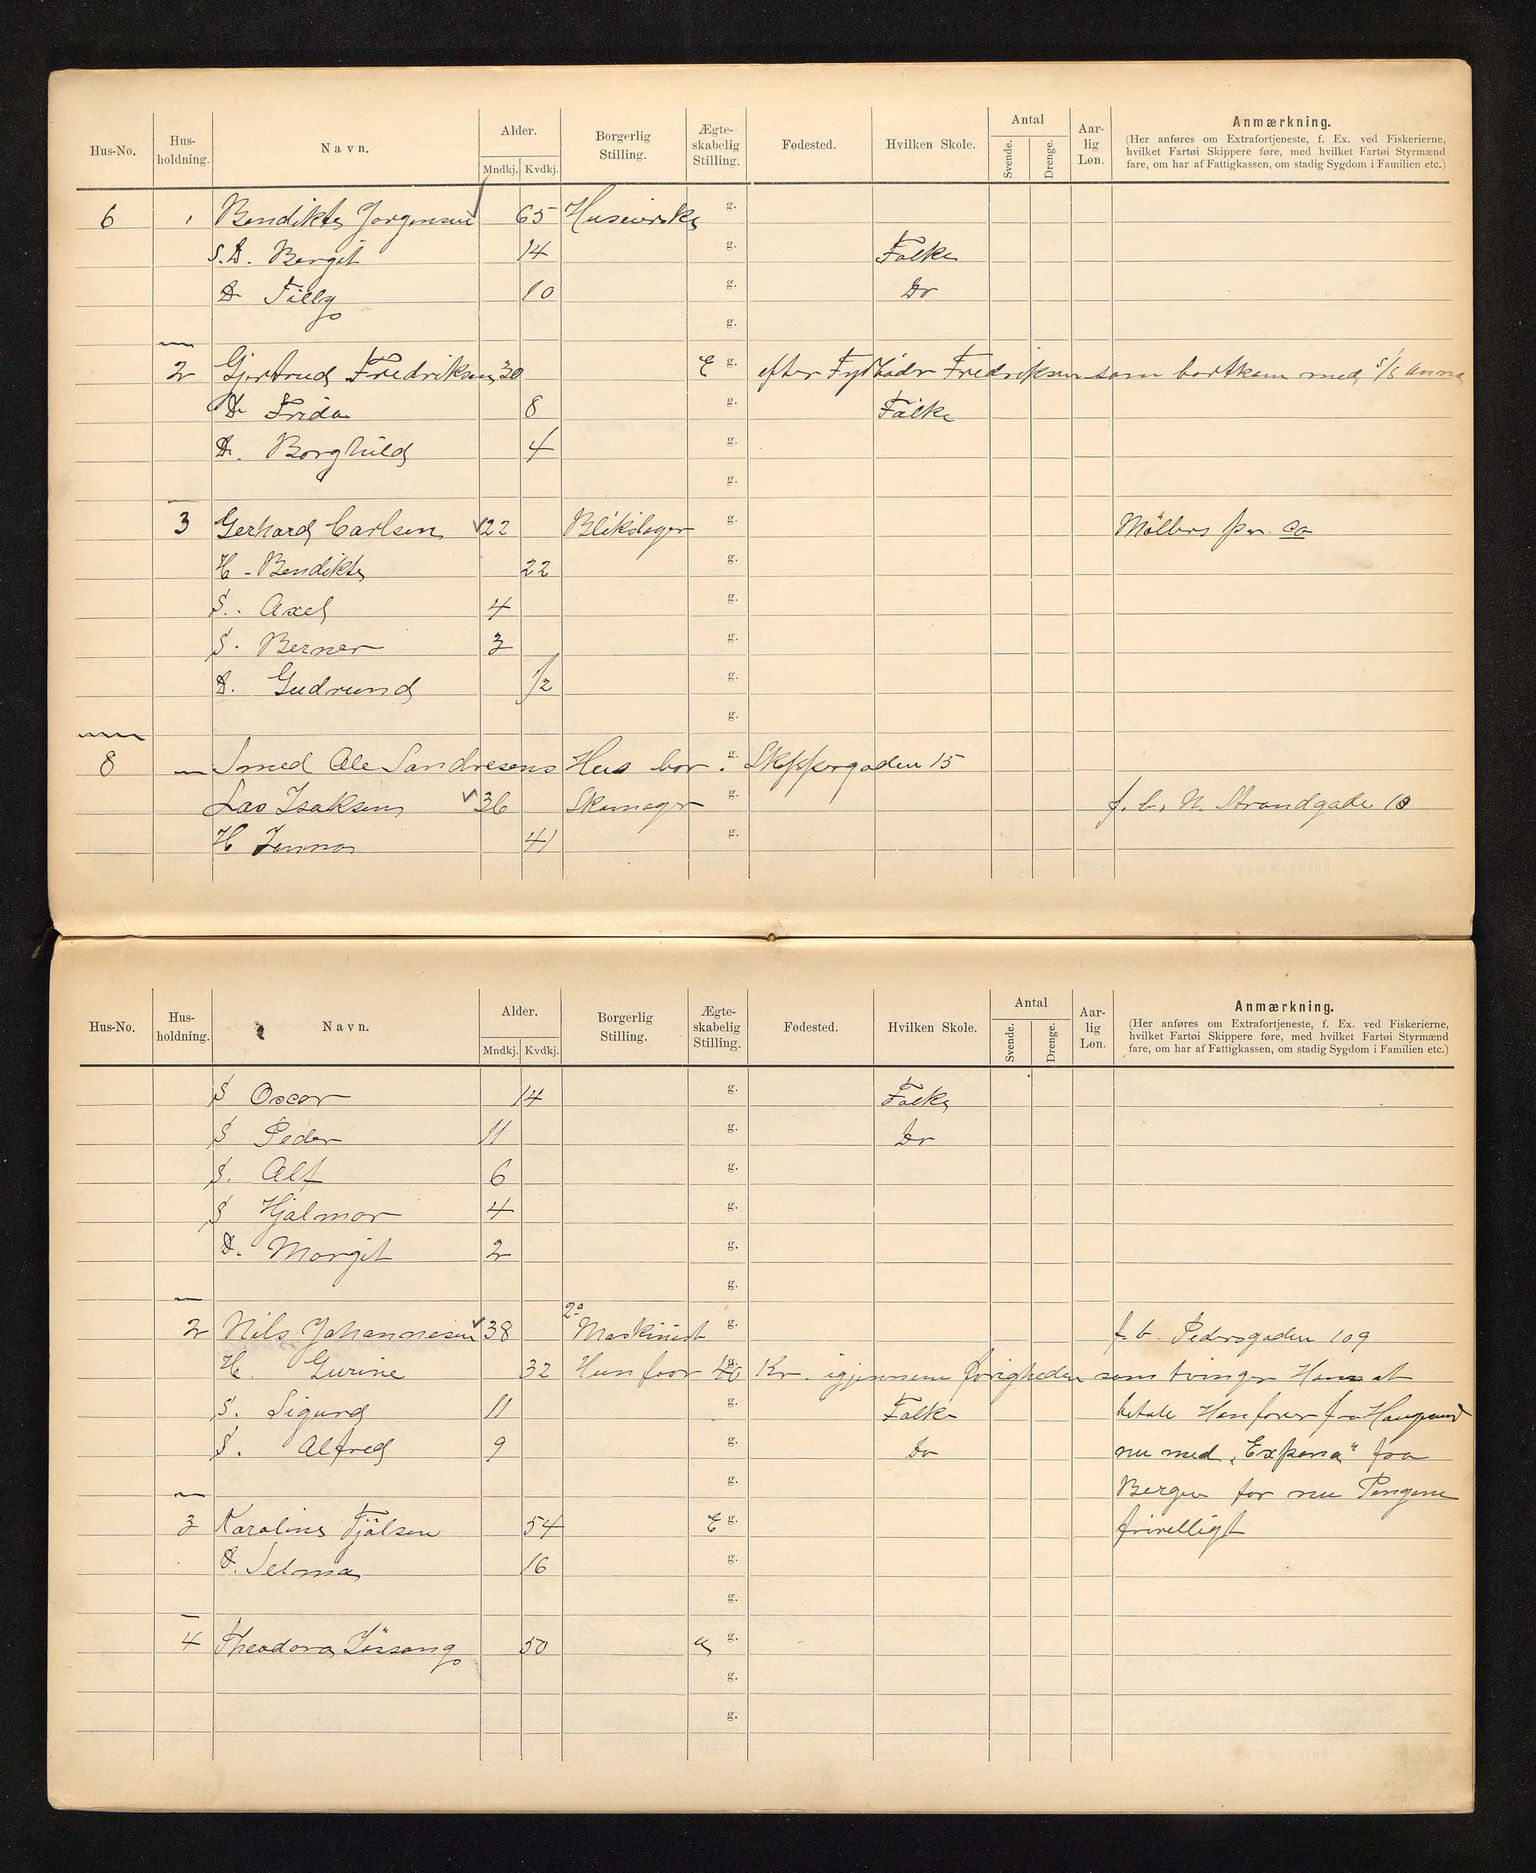 Hus-No. Hus-holdning. Navn. Alder. Mndkj. Kvdkj. Borgerlig Stilling. Ægte-skabelig Stilling. Fødested. Hvilken Skole. Antal Svende. Drenge. Aar-lig Løn. Anmærkning.
(Her anføres om Extrafortjeneste, f. Ex. ved Fiskerierne,
hvilket Fartøi Skippere føre, med hvilket Fartøi Styrmænd
fare, om har af Fattigkassen, om stadig Sygdom i Familien etc.)
6 1 Bendikte Jørgensen 65 g.
S. D. Bergit 14 g. Folke
D Tilly 10 g. Do
g.
2 Gjertrud Fredriksen 30 E g. efter Fyrbøder Fredriksen som bortkom med S/S Anna
D. Frida 8 g. Folke
D. Borghild 4 g.
g.
3 Gerhard Carlsen 22 Blikslager g. Møllers pr. Co
H - Bendikte 22 g.
S. Axel 4 g.
S. Berner 3 g.
D. Gudrund 1/2 g.
g.
8 Smed Ole Sandresens Hus bor g. Skippergaden 15
Las Isaksen 36 Skomager g. f. b. N. Strandgade 10
H Jenna 41 g.
Hus-No. Hus-holdning. Navn. Alder. Mndkj. Kvdkj. Borgerlig Stilling. Ægte-skabelig Stilling. Fødested. Hvilken Skole. Antal Svende. Drenge. Aar-lig Løn. Anmærkning.
(Her anføres om Extrafortjeneste, f. Ex. ved Fiskerierne,
hvilket Fartøi Skippere føre, med hvilket Fartøi Styrmænd
fare, om har af Fattigkassen, om stadig Sygdom i Familien etc.)
S Oscar 14 g. Folke
S Peder 11 g. Do
S. Alf 6 g.
S Hjalmar 4 g.
D. Margit 2 g.
g.
2 Nils Johannesen 38 2den Maskinist g. f. b. Pedersgaden 109
H. Gurine 32 Hun faar 40 g. Kr. igjennem som tvinger Ham at
S. Sigurd 11 g. Folke betale Han farer fra Haugesund
S. Alfred 9 g. Do nu med fra
g. Bergen for nu Pengene
3 Karoline Fjølsen 54 E g. frivelligt
D. Selma 16 g.
g.
4 Theodora Jøssang 50 g.
g.
g.